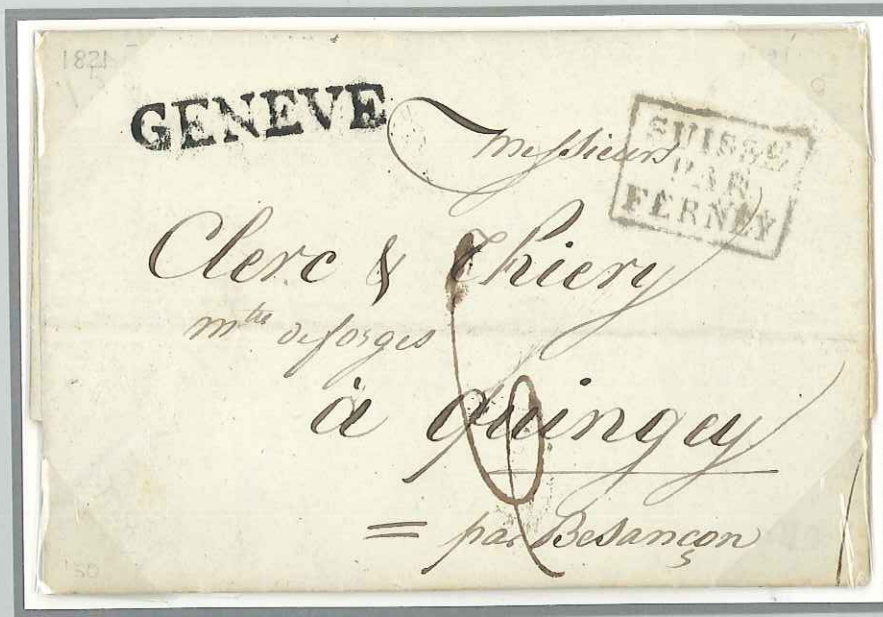 1821
GENEVE
SUISSE
PAR
FERNEY
Messieurs
Clerc & Thiery
mtre de forges
à Quingey
= par Besançon
50